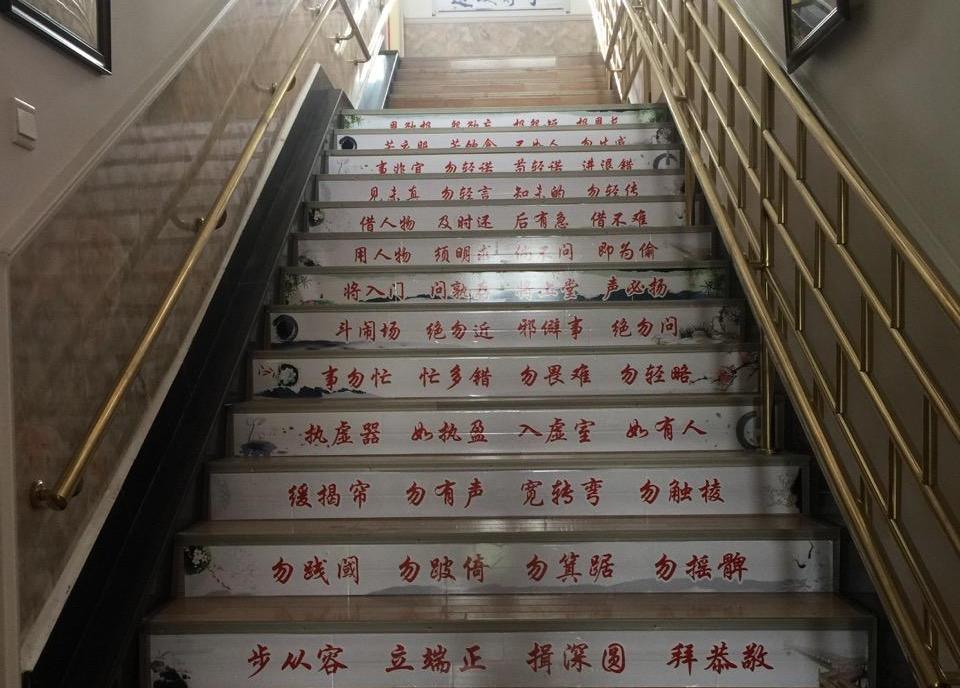 若衣服 若饮食 不如人 勿生戚
事非宜 勿轻诺 苟轻诺 进退错
见未真 勿轻言 知未的 勿轻传
借人物 及时还 后有急 借不难
用人物 须明求 倘不问 即为偷
将入门 问孰存 将上堂 声必扬
斗闹场 绝勿近 邪僻事 绝勿问
事勿忙 忙多错 勿畏难 勿轻略
执虚器 如执盈 入虚室 如有人
缓揭帘 勿有声 宽转弯 勿触棱
勿践阈 勿跛倚 勿箕踞 勿摇髀
步从容 立端正 揖深圆 拜恭敬